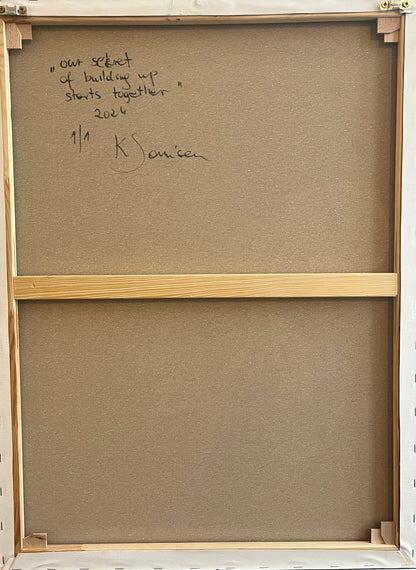 "our secret
of building up
starts together"
2024
1/1
K